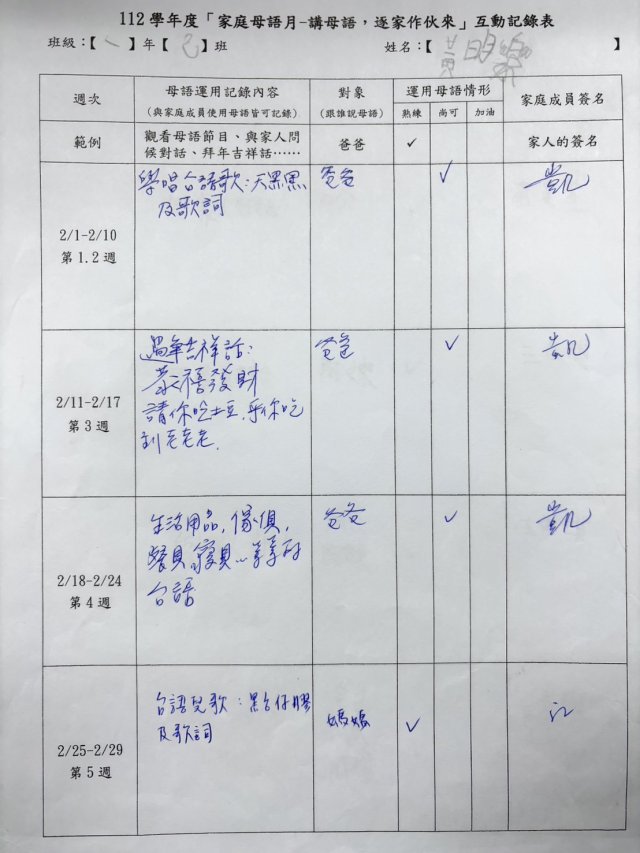 112學年度「家庭母語月-講母語,逐家作伙來」互動記錄表
班級:【一】年【己】班 姓名:【黃明樂】
週次 母語運用記錄內容 對象 運用母語情形 家庭成員簽名
(與家庭成員使用母語皆可記錄) (跟誰說母語) 熟練 尚可 加油
範例 觀看母語節目、與家人問 爸爸 ✓ 家人的簽名
候對話、拜年吉祥話……
學唱台語歌:天黑黑 爸爸 ✓ 凱
及歌詞
2/1-2/10
第1.2週
過年吉祥話: 爸爸 ✓ 凱
恭禧發財
2/11-2/17 請你吃土豆,乎你吃
第3週 到老老老.
生活用品,傢俱, 爸爸 ✓ 凱
餐具,寢具…等等的
2/18-2/24 台語
第4週
台語兒歌:點仔膠 媽媽 ✓ 江
及歌詞
2/25-2/29
第5週